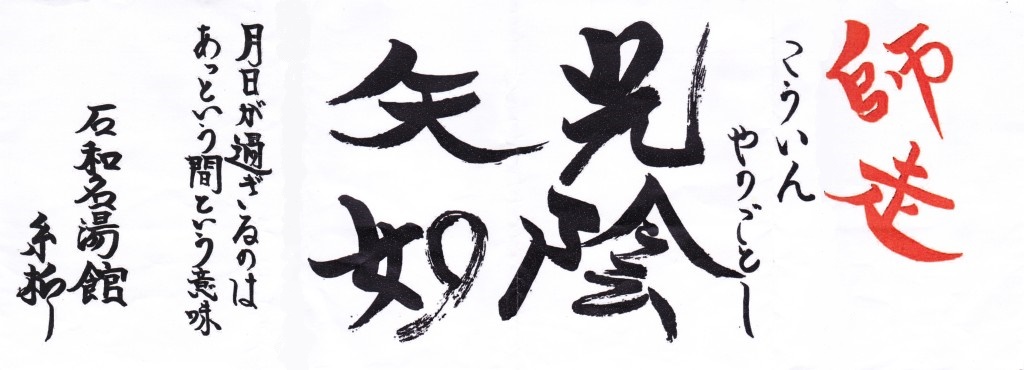 師走
こういん
やのごとし
光陰
矢如
月日が過ぎるのは
あっという間という意味
石和名湯館
糸柳